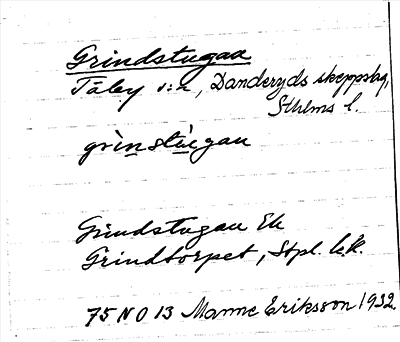 Grindstugan
Täby s:n, Danderyds skeppslag,
Sthlms l.
grìnstùgan
Grindstugan Ek
Grindtorpet, Stpl. k.k.
75 NO 13 Manne Eriksson 1932.